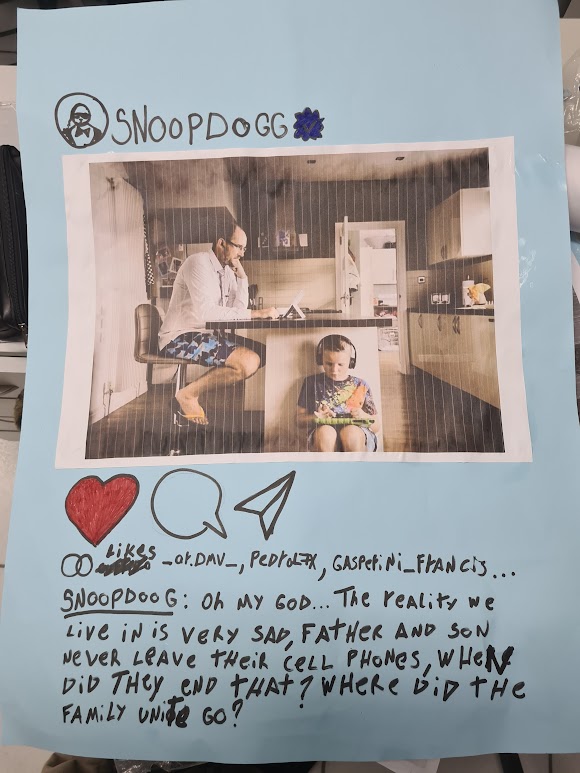 SNOOPDOGG
Likes _or.DMV_, PEDROLFX, GASPERiNi_FRANCIS...
SNOOPDOOG: OH MY GOD... THE REALITY WE
LIVE IN IS VERY SAD, FATHER AND SON
NEVER LEAVE THEIR CELL PHONES, WHEN
DID THEY END THAT? WHERE DID THE
FAMILY UNITE GO?